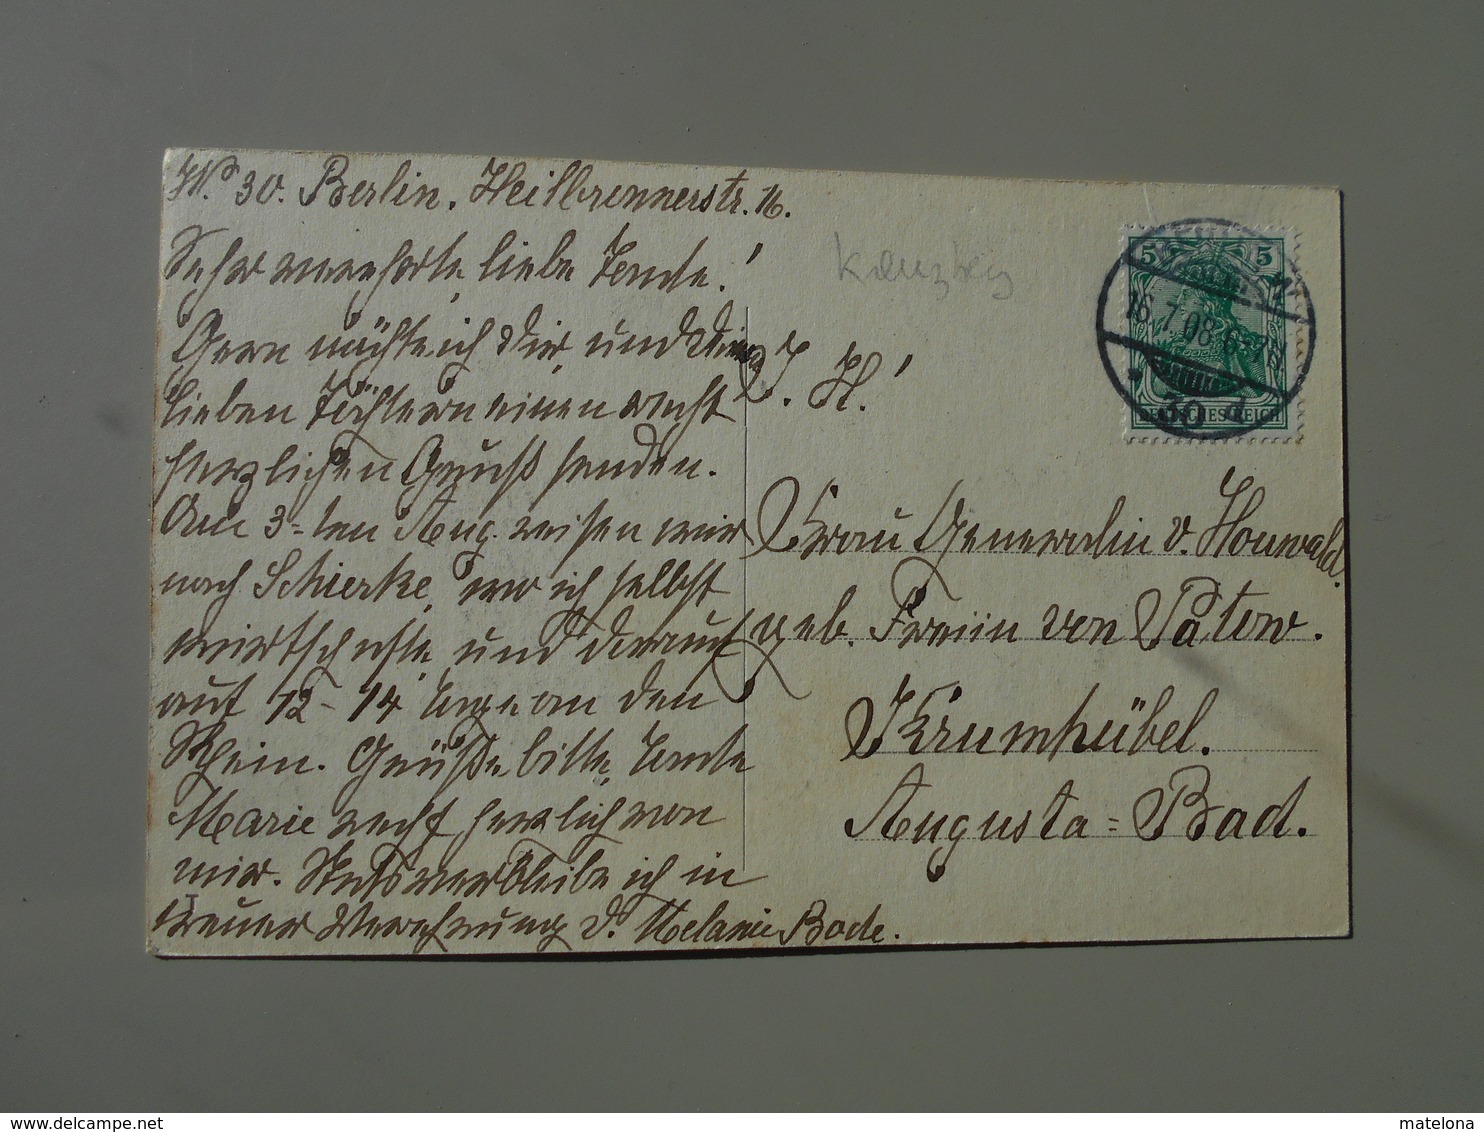 W. 30. Berlin. Heilbronnerstr. 16.
Sehr verehrte, liebe Tante!
Gern möchte ich Dir und Deinen
lieben Töchtern einen recht
herzlichen Gruß senden.
Am 3=ten Aug. reisen wir
nach Schierke, wo ich selbst
wirtschafte, und darauf
auf 12-14 Tage an den
Rhein. Grüße bitte, Tante
Marie recht herzlich von
mir. Stets verbleibe ich in
treuer Verehrung D. Melanie Bode.
Kreuzberg
I. H.!
Frau Generalin v. Houwald.
geb. Freiin von Patow.
Krumhübel.
Augusta=Bad.
5 5
16.7.08. 6-7N
30 d
DEUTSCHES REICH
www.delcampe.net
matelona